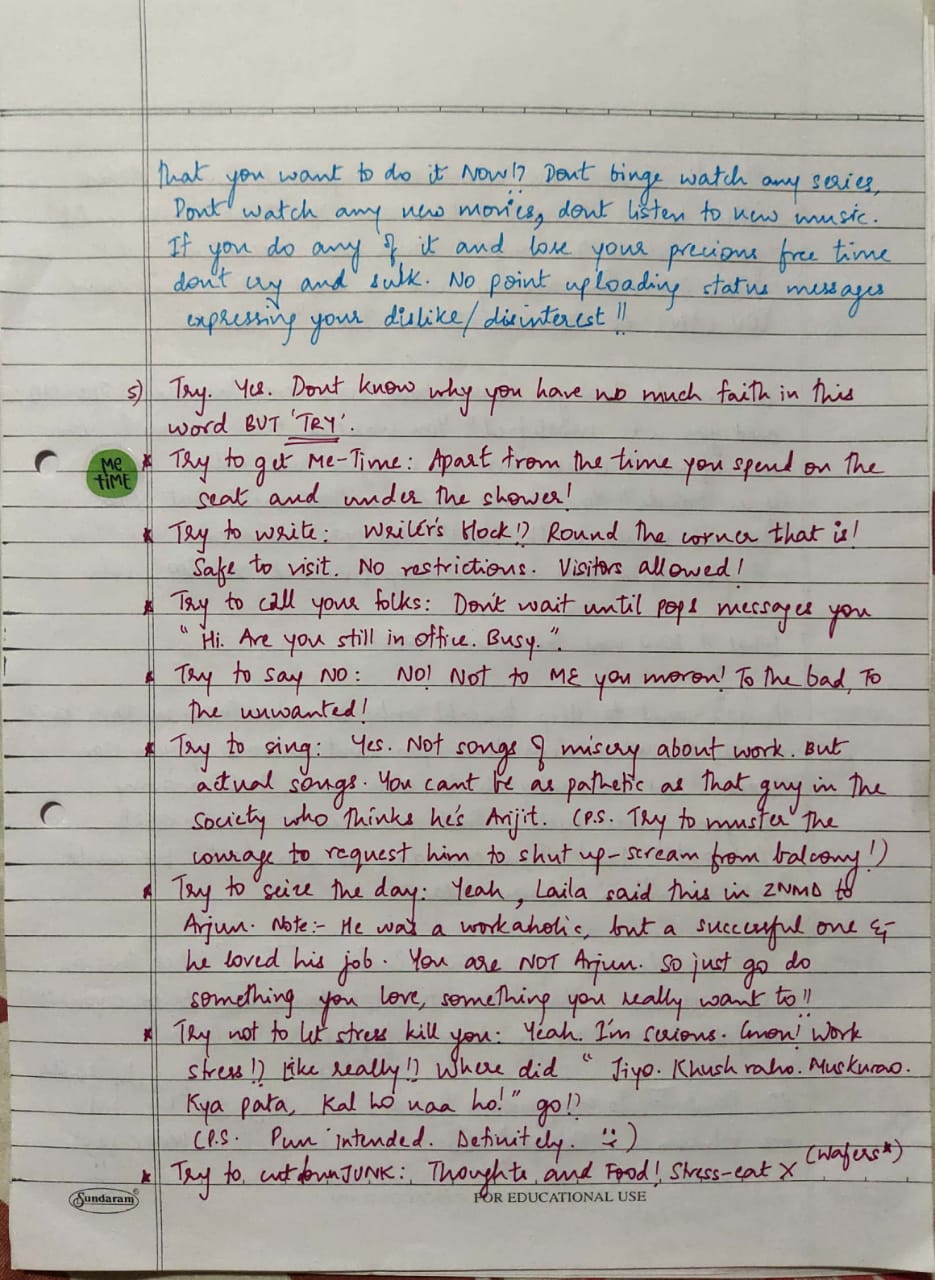 that you want to do it Now!? Dont binge watch any series,
Dont watch any new movies, dont listen to new music.
If you do any of it and lose your precious free time
don't cry and sulk. No point uploading status messages
expressing your dislike/disinterest!!
5) Try. Yes. Dont know why you have so much faith in this
word BUT 'TRY'.
ME
TIME
* Try to get Me-Time: Apart from the time you spend on the
seat and under the shower!
* Try to write: Writer's block!? Round the corner that is!
Safe to visit. No restrictions. Visitors allowed!
* Try to call your folks: Don't wait until pops messages you
"Hi. Are you still in office. Busy.".
* Try to say NO: NO! Not to ME you moron! To the bad, To
the unwanted!
* Try to sing: Yes. Not songs of misery about work. But
actual songs. You cant be as pathetic as that guy in the
society who thinks he's Arijit. (P.S. Try to muster the
courage to request him to shut up-scream from balcony!)
* Try to seize the day: Yeah, Laila said this in ZNMD to
Arjun. Note:- He was a workaholic, but a successful one &
he loved his job. You are NOT Arjun. So just go do
something you love, something you really want to!!
* Try not to let stress kill you: Yeah. I'm serious. Cmon! Work
stress!? Like really!? Where did "Jiyo. Khush raho. Muskurao.
Kya pata, Kal ho naa ho!" go!?
(P.S. Pun intended. Definitely. :))
* Try to cut down JUNK: Thoughts and Food! Stress-eat X (Wafers*)
Sundaram®
FOR EDUCATIONAL USE